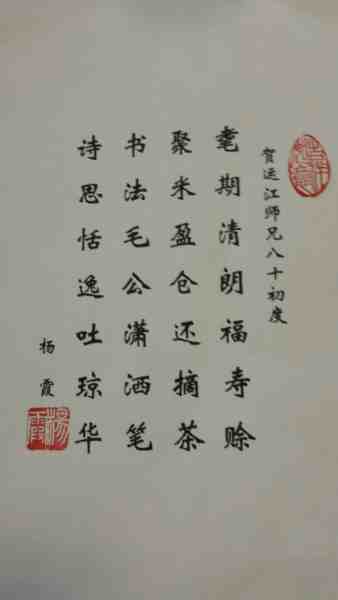 贺运江师兄八十初度
耄期清朗福寿赊
聚米盈仓还摘茶
书法毛公潇洒笔
诗思恬逸吐琼华
杨霞
杨霞